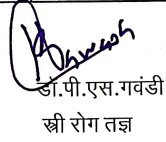 डॉ.पी.एस.गवंडी
स्री रोग तज्ञ